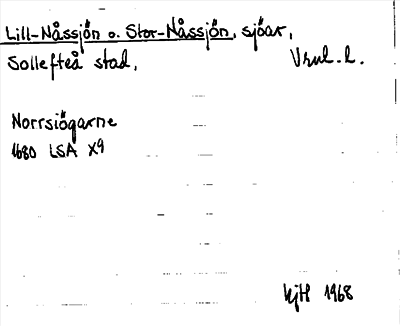 Lill-Nåssjön o. Stor-Nåssjön, sjöar,
Sollefteå stad, Vrml. l.
Norrsiögarne
1680 LSA X9
HjH 1968